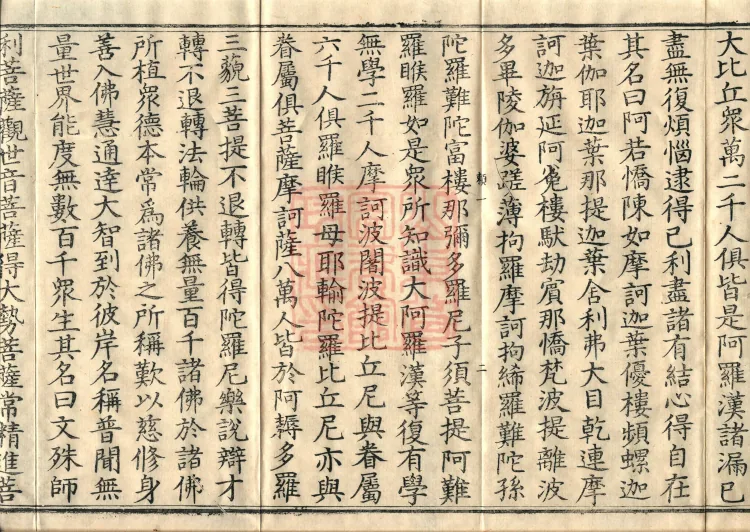 大比丘眾萬二千人俱皆是阿羅漢諸漏已
盡無復煩惱逮得己利盡諸有結心得自在
其名曰阿若憍陳如摩訶迦葉優樓頻螺迦
葉伽耶迦葉那提迦葉舍利弗大目乾連摩
訶迦旃延阿㝹樓馱劫賓那憍梵波提離波
多畢陵伽婆蹉薄拘羅摩訶拘絺羅難陀孫
一 二
陀羅難陀富樓那彌多羅尼子須菩提阿難
羅睺羅如是眾所知識大阿羅漢等復有學
無學二千人摩訶波闍波提比丘尼與眷屬
六千人俱羅睺羅母耶輸陀羅比丘尼亦與
眷屬俱菩薩摩訶薩八萬人皆於阿耨多羅
三藐三菩提不退轉皆得陀羅尼樂說辯才
轉不退轉法輪供養無量百千諸佛於諸佛
所植眾德本常爲諸佛之所稱歎以慈修身
善入佛慧通達大智到於彼岸名稱普聞無
量世界能度無數百千眾生其名曰文殊師
利菩薩觀世音菩薩得大勢菩薩常精進菩